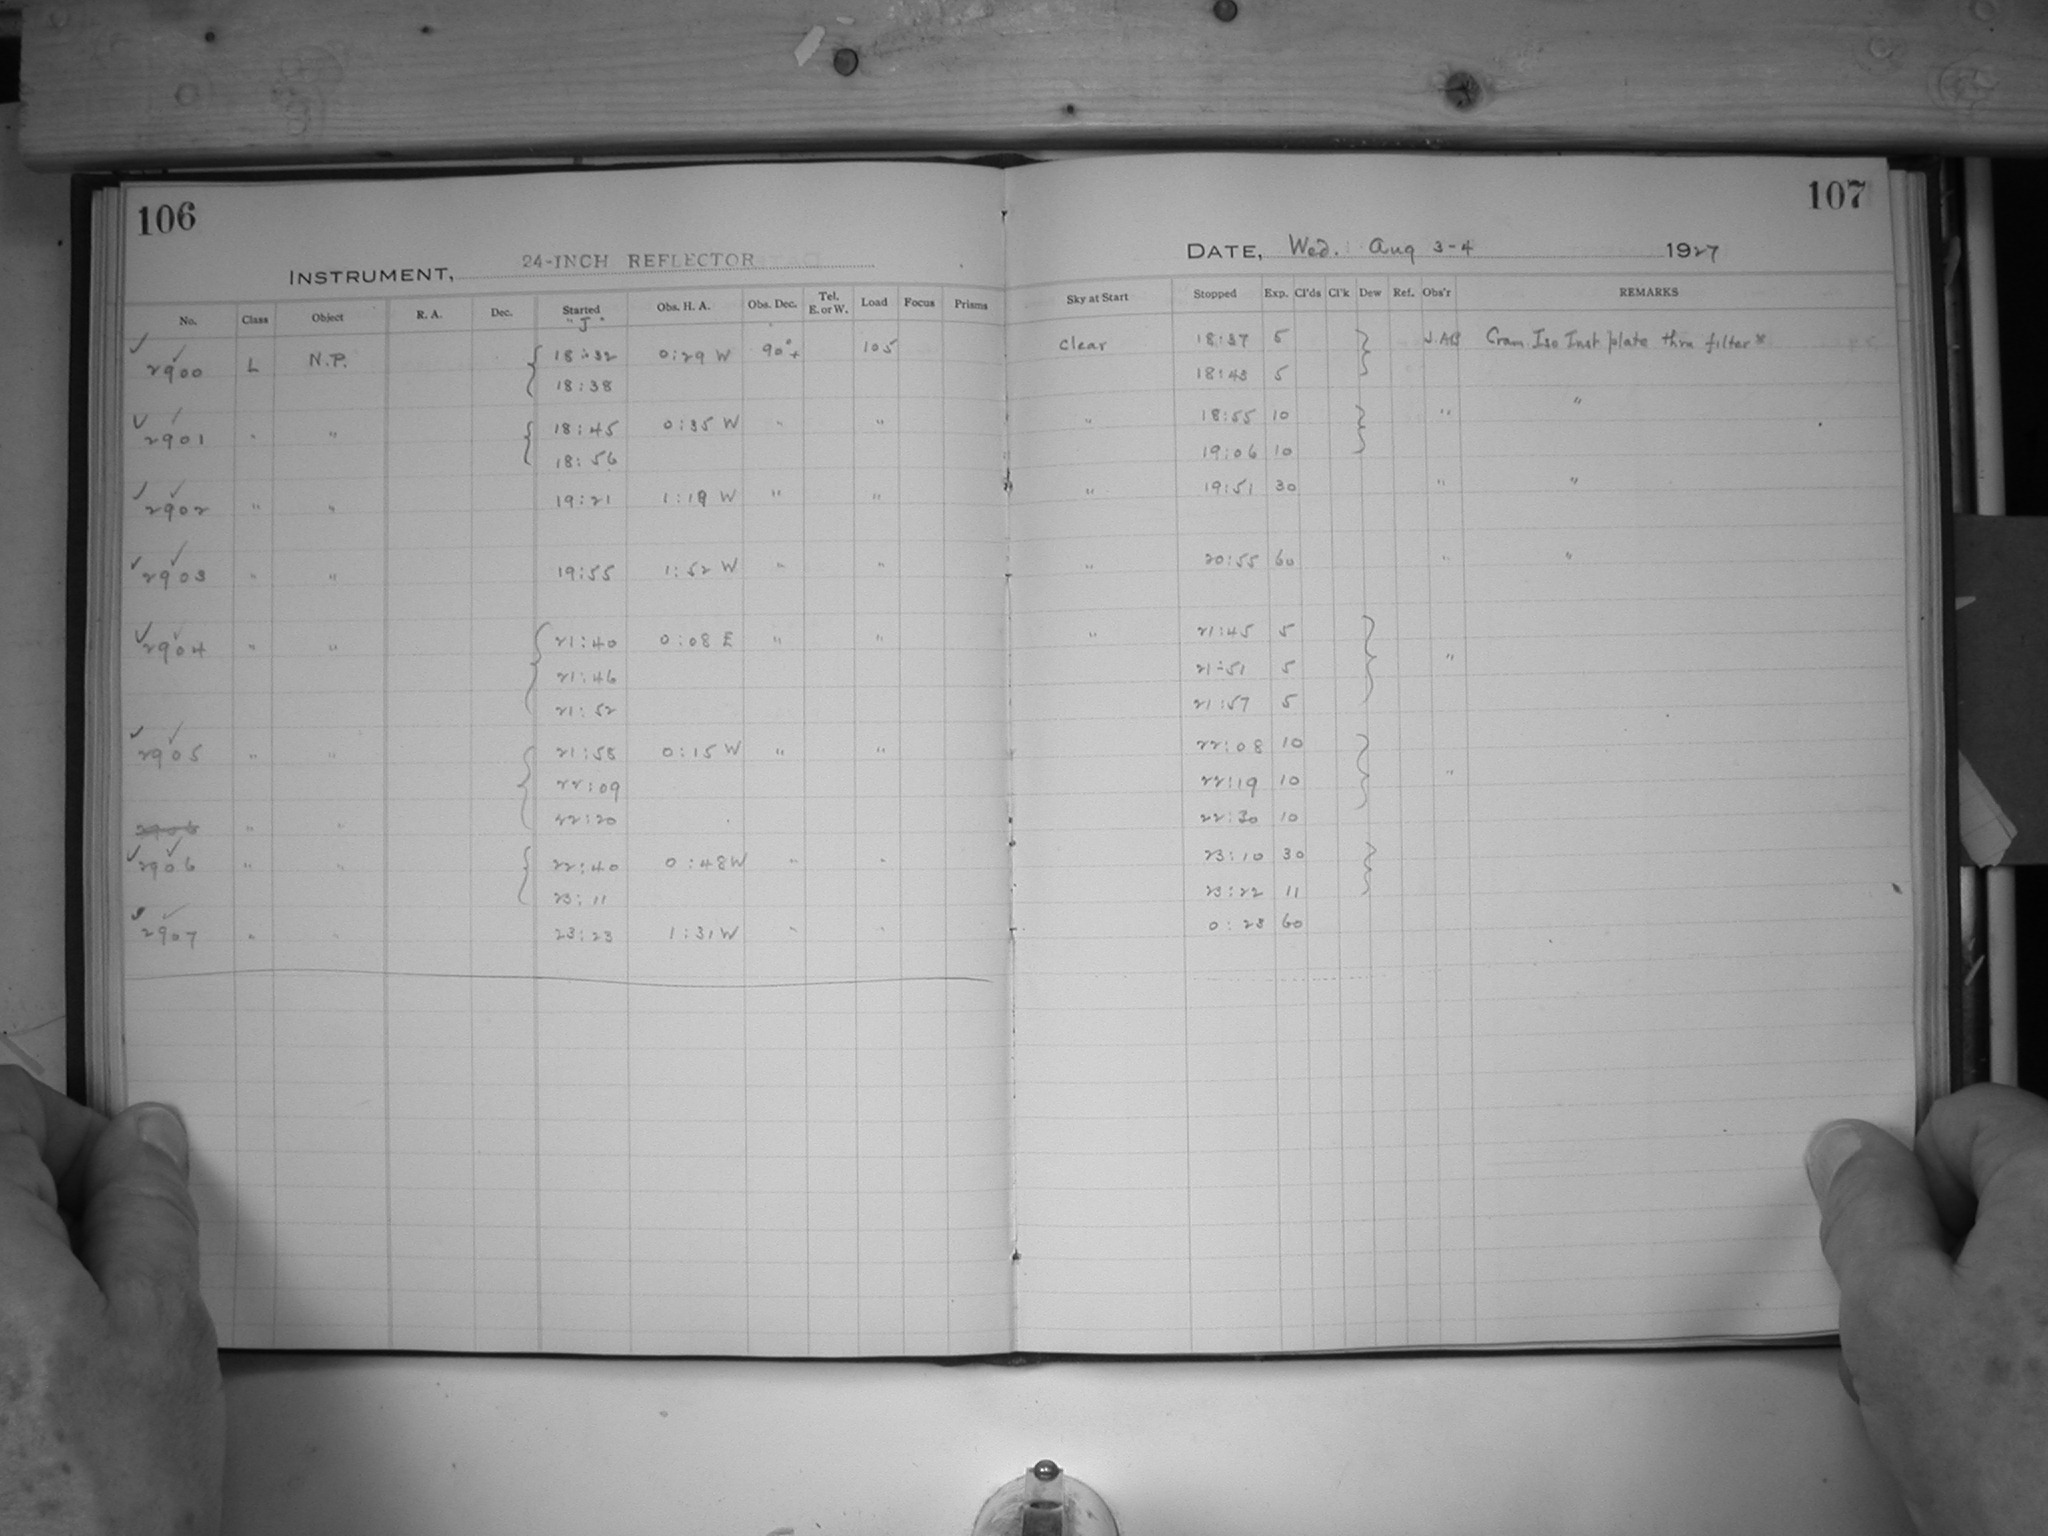 106
INSTRUMENT, 24-INCH REFLECTOR
No. Class Object R. A. Dec. Started "J" Obs. H. A. Obs. Dec. Tel. E. or W. Load Focus Prisms
2900 L N.P. 18:32 0:29 W 90°+ 105
18:38
2901 " " 18:45 0:35 W " "
18:56
2902 " " 19:21 1:19 W " "
2903 " " 19:55 1:52 W " "
2904 " " 21:40 0:08 E " "
21:46
21:52
2905 " " 21:58 0:15 W " "
22:09
2906 " " 22:20
2906 " " 22:40 0:48 W " "
23:11
2907 " " 23:23 1:31 W " "
107
DATE, Wed. Aug 3-4 1927
Sky at Start Stopped Exp. Cl'ds Cl'k Dew Ref. Obs'r REMARKS
Clear 18:37 5 Cram. Iso Inst plate thru filter *
18:43 5
" 18:55 10 " "
19:06 10
" 19:51 30 " "
" 20:55 60 " "
" 21:45 5
21:51 5 "
21:57 5
22:08 10
22:19 10 "
22:30 10
23:10 30
23:22 11
0:23 60